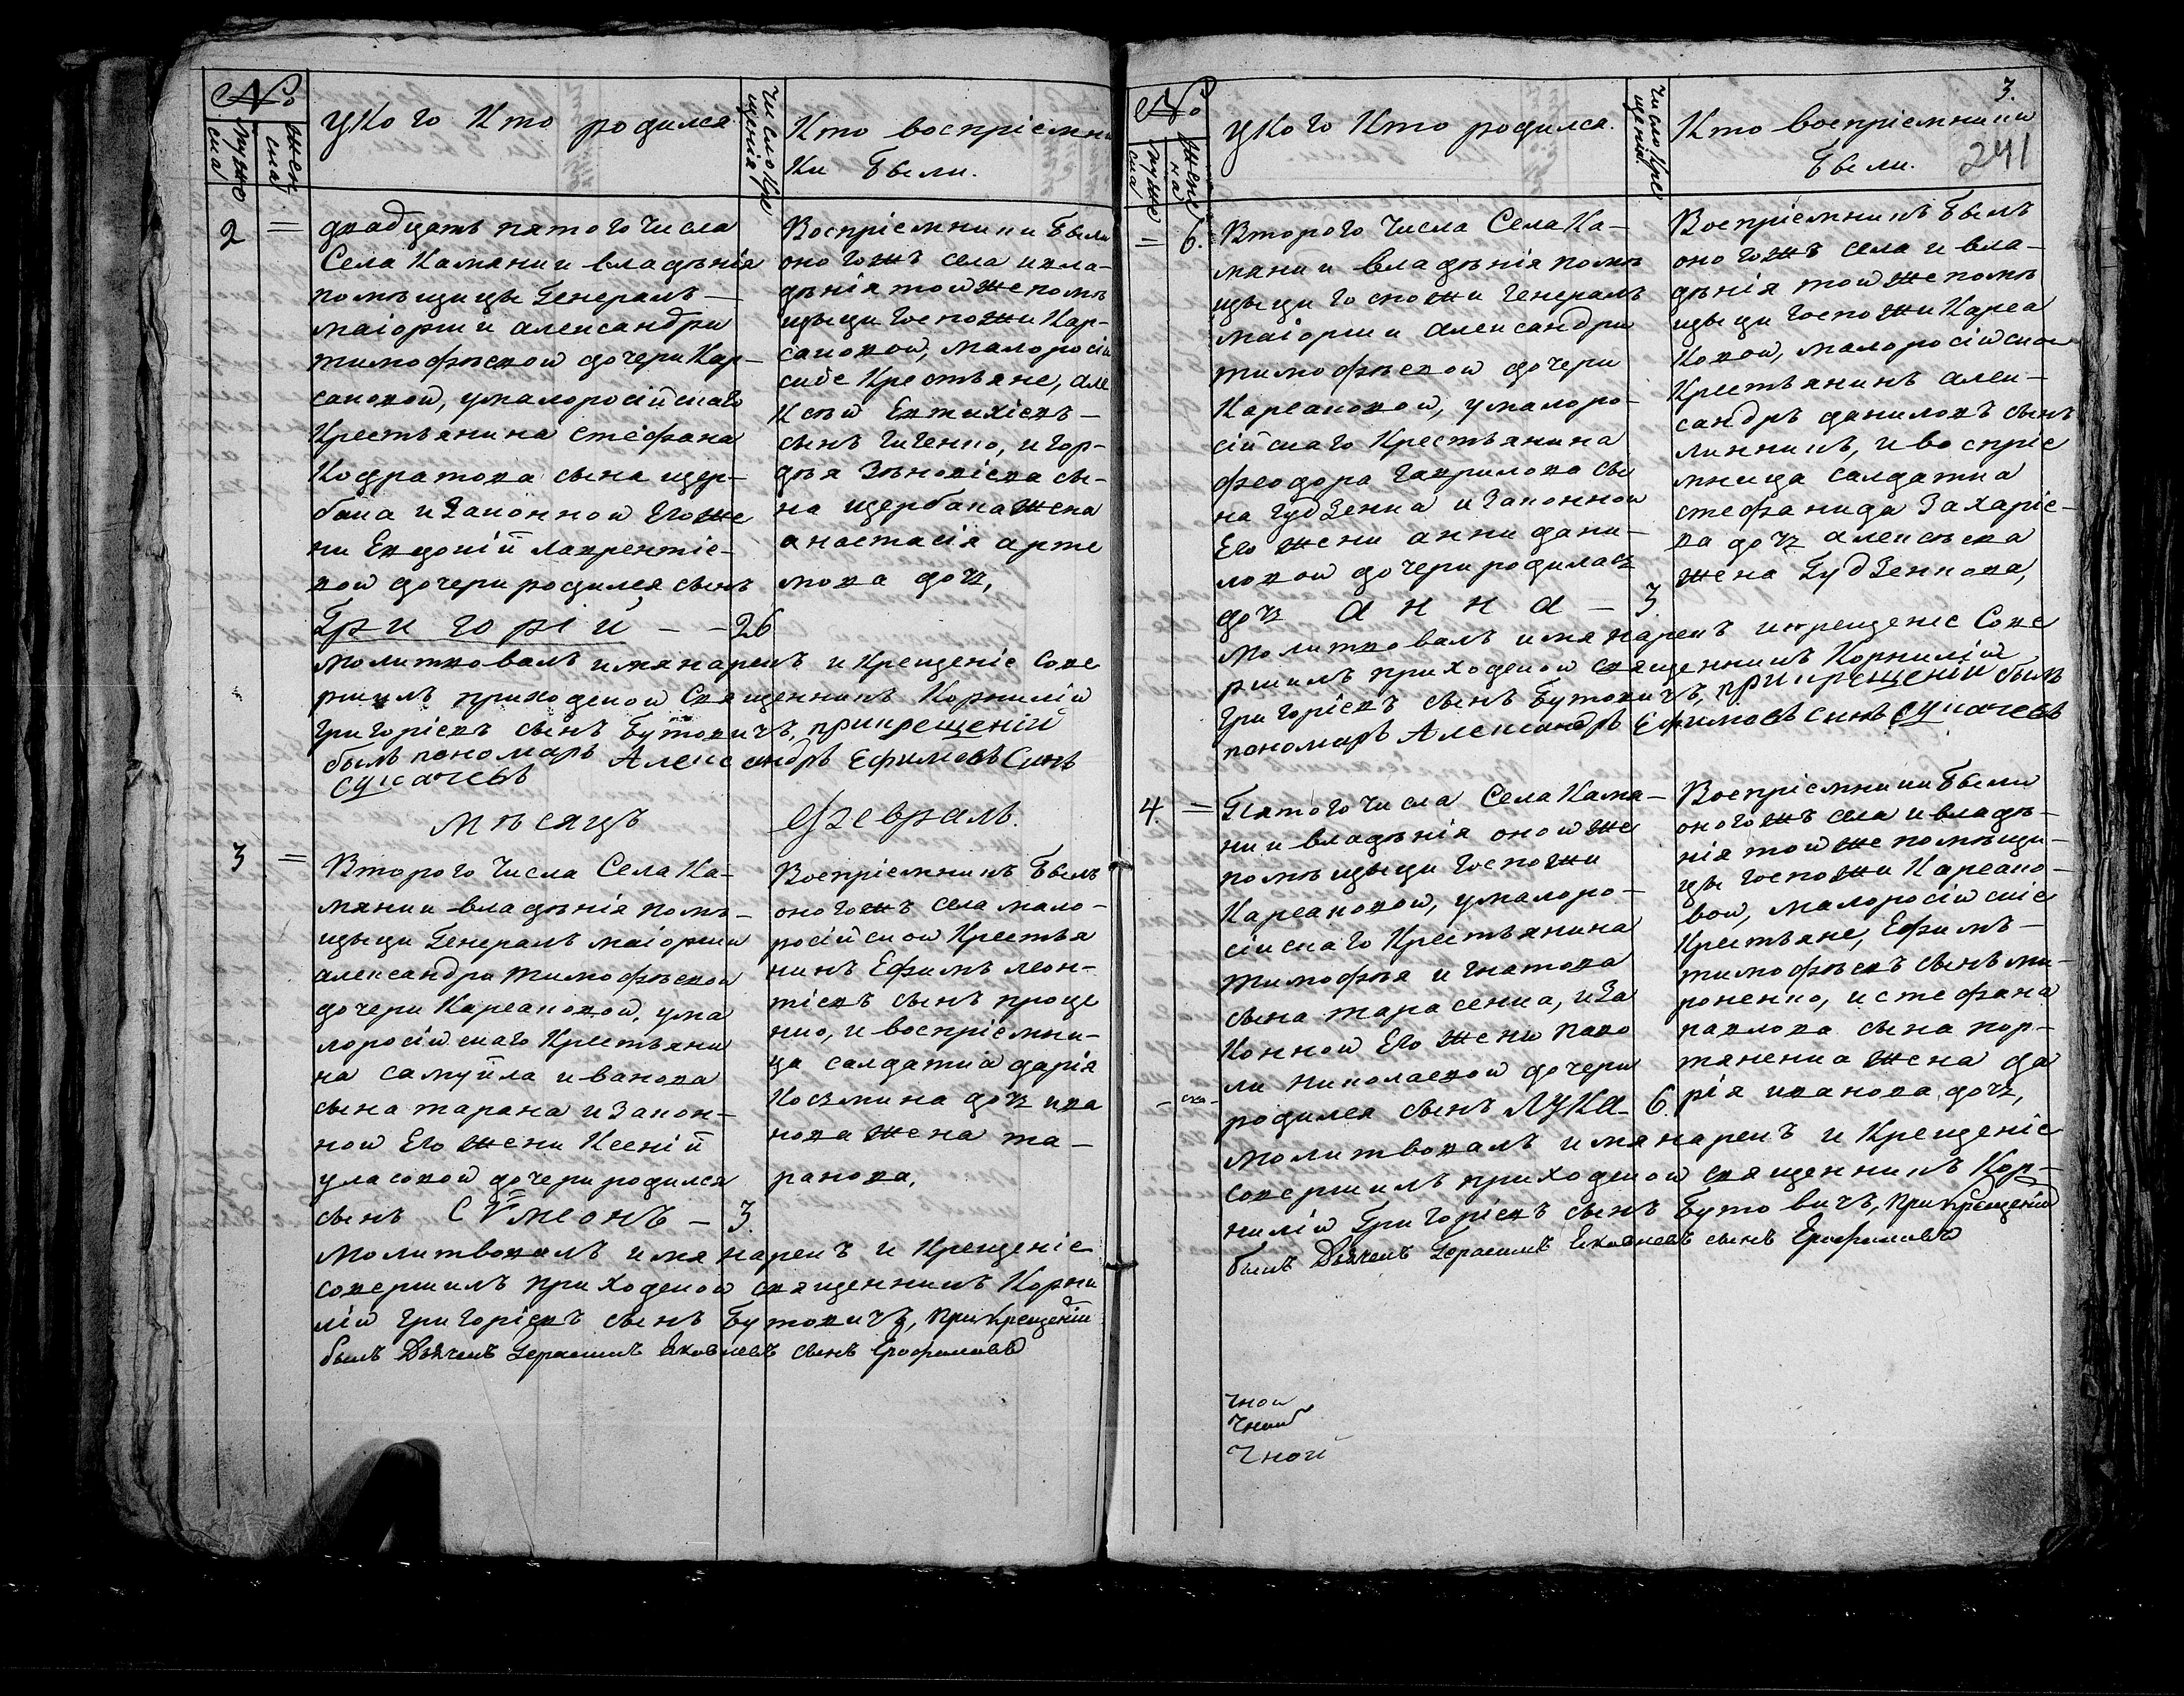 №
мужеска
женска
У кого кто родился.
Число крещенія
Кто воспріемни
ки были.
2 =
двадцать пятого числа
Села Камянки владѣнія
помѣщицы Генералъ —
маіорши александри
тимофѣевой дочери Кар-
саковой, умалоросійскаго
Крестьянина стефана
Кодратова сына щер-
бака и законной Его же
ни Евдокій лаврентіе-
вой дочери родился сынъ
Григорій — - 26
Воспріемники были
оногожъ села ивла-
дѣнія тойже помѣ
щыци госпожи Кар-
саковой, малоросій
скіе Крестьяне, але
ксѣй Евтихіевъ —
сынъ гиченко, игор-
дѣя Зѣновіева сы-
на щербака жена
анастасія арте
мова дочь,
молитвовалъ имя нарекъ и Крещеніе сове
ршилъ приходской Священникъ Корнилій
григоріевъ сынъ Бутовичъ, прикрещеній
былъ пономарь Александръ Ефимовъ Синъ
Сукачевъ
Мѣсяцъ Февраль.
3 =
Второго числа Села Ка-
мянки владѣнія помѣ-
щыци Генералъ маіорши
александри тимофѣевой
дочери Карсаковой, ума
лоросійскаго Крестьяни
на самуйла иванова
сына тарана и закон-
ной Его жени Ксеній
уласовой дочери родился
сынъ Сѵмеонъ — 3.
Воспріемникъ былъ
оногожъ села мало-
російской Крестья
нинъ Ефимъ леон-
тіевъ сынъ проце
нко, и воспріемни-
ца салдатка дарія
Козмина дочь ива
нова жена та-
ранова.
молитвовалъ имя нарекъ и Крещеніе
совершилъ приходской священникъ Корни
лій григоріевъ сынъ Бутовичъ, при крещеніи
былъ Дьячекъ Герасимъ Яковлевъ сынъ Ерофаловъ
№
мужеска
женска
У кого кто родился.
Число крещенія
Кто воспріемники
были.
3.
241
= 6.
Второго числа Села Ка-
мянки владѣнія помѣ
щыци госпожи генералъ
маіорши александри
тимофѣевой дочери
Карсаковой, умалоро-
сійскаго Крестьянина
феодора гаврилова сы
на гудзенка и законной
Его жени анни дани-
ловой дочери родилась
дочь анна — 3
Воспріемникъ былъ
оногожъ села и вла-
дѣнія тойже помѣ
щыци госпожи Карса
ковой, малоросійской
Крестьянинъ алек-
сандръ даниловъ сынъ
линникъ, и воспріе
мница салдатка
стефанида Захаріе-
ва дочь алексѣева
жена Гудзенкова,
молитвовалъ имя нарекъ икрещеніе Сове
ршилъ приходской священникъ Корнилій
григоріевъ сынъ Бутовичъ, прикрещеній былъ
пономарь Александръ Ефимовъ синъ Сукачевъ
4 =
Пятого числа Села Камя-
нки владѣнія оной же
помѣщыци госпожи
Карсаковой, умалоро-
сійскаго Крестьянина
тимофѣя игнатова
сына тарасенка, иза
конной Его жени пав
ли николаевой дочери
родился сынъ лука - 6.
Воспріемники были
оногожъ села и владѣ-
нія тойже помѣщи-
цы госпожи Карсако-
вой, малоросійскіе
Крестьяне, Ефимъ —
тимофѣевъ сынъ ми-
роненко, и стефана
павлова сына пор-
тяненка жена да
рія иванова дочь,
молитвовалъ имя нарекъ и Крещеніе
совершилъ приходской священникъ Кор-
нилій григоріевъ сынъ Бутовичъ, при крещеніи
былъ Дьячекъ Герасимъ Яковлевъ сынъ Ерофаловъ
чной
чной
чной